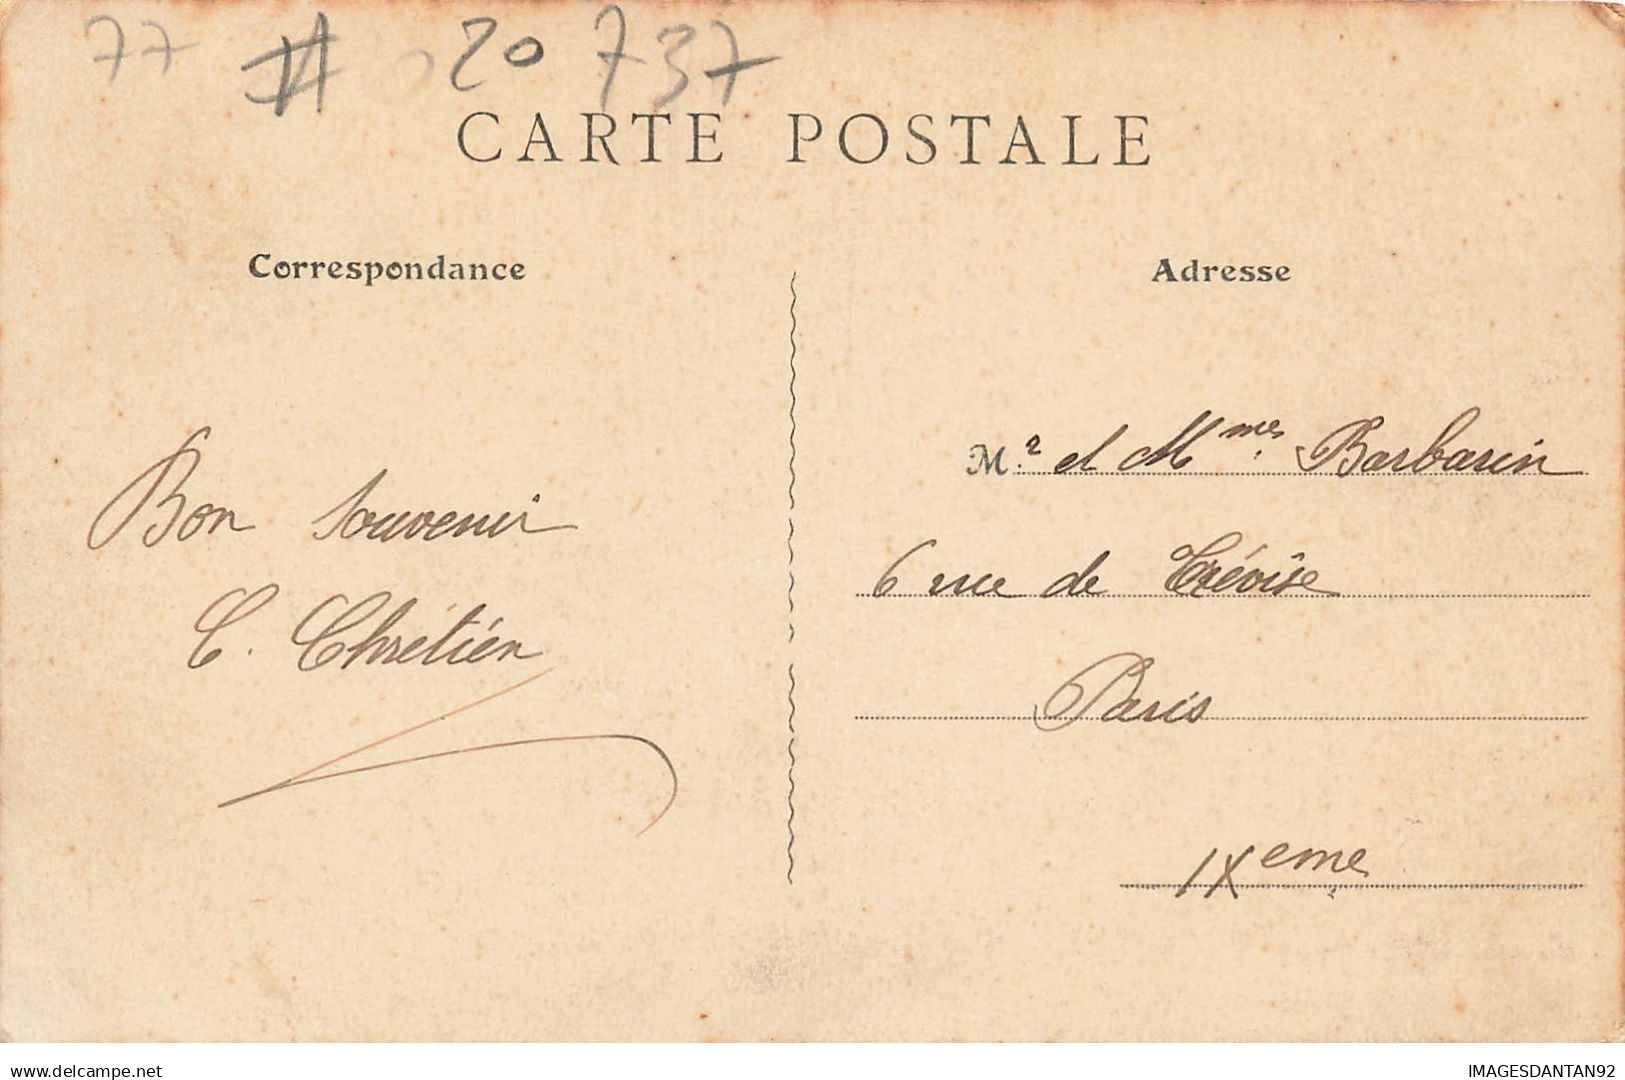 77 # 20 737
CARTE POSTALE
Correspondance
Adresse
Mr et Mmes Barbarin
6 rue de Trévise
Paris
IXeme
Bon souvenir
C. Chrétien
www.delcampe.net
IMAGESDANTAN92